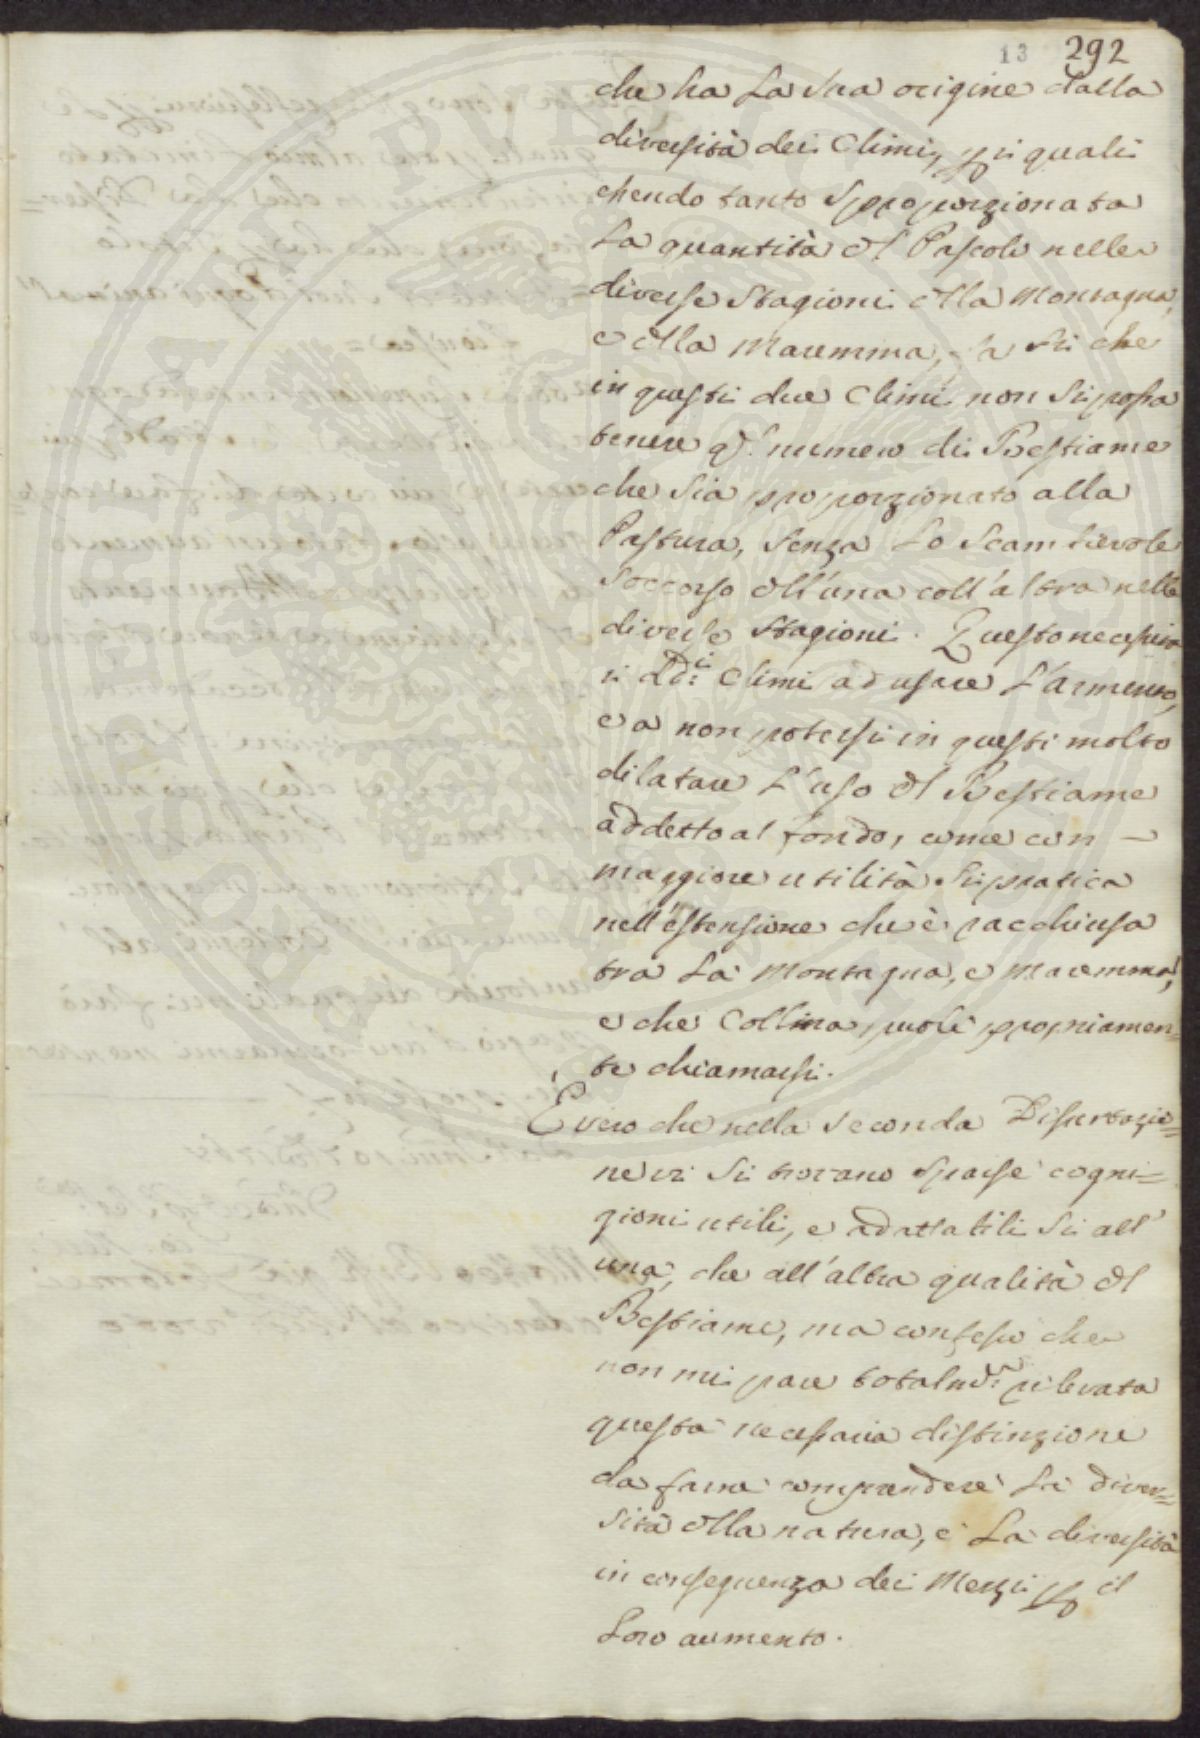 13 292
che ha La Sua origine dalla
diversità dei Climi, p i quali
essendo tanto Sproporzionata
La quantità dl Pascolo nelle
diverse Stagioni dlla Montagna,
e dlla Maremma, fa Si che
in questi due Climi non Si possa
tenere qł. numero di Bestiame
che Sia proporzionato alla
Pastura, Senza Lo Scambievole
Soccorso dll'una coll'altra nelle
diverse Stagioni. Questo necessita
i ddi. Climi ad usare L'armento,
e a non potersi in questi molto
dilatare L'uso dl Bestiame
addetto al fondo, come con
maggiore utilità Si pratica
nell'estensione che è racchiusa
tra La Montagna, e Maremma,
e che Collina puole propriamen=
te chiamarsi.
È vero che nella Seconda Dissertazio=
ne vi Si trovano Sparse cogni=
zioni utili, e adattabili Si all'
una, che all'altra qualità dl
Bestiame, ma confesso che
non mi pare totalmte rilevata
questa necessaria distinzione
da farne comprendere La diver=
sità dlla natura, e La diversità
in conseguenza dei Mezzi p il
Loro aumento.